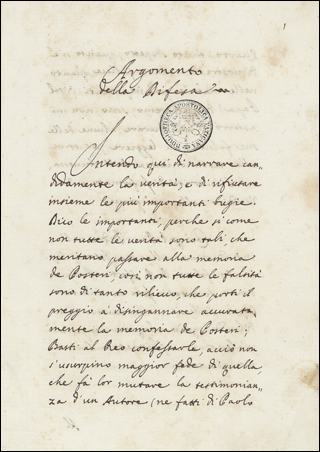 1
Argomento
della Difesa
BIBLIOTECA APOSTOLICA VATICANA
Intendo qui di narrare can=
didamente la verità, e di rifiutare
insieme le più importanti bugie.
Dico le importanti, perche si come
non tutte le verità sono tali, che
meritano passare alla memoria
de Posteri, così non tutte le falsità
sono di tanto rilievo, che porti il
preggio a disingannare accurata=
mente la memoria de Posteri;
Basti al Reo confessarle, acciò non
s'usurpino maggior fede di quella,
che fà lor mutare la testimonian=
za d'un Autore (ne fatti di Paolo